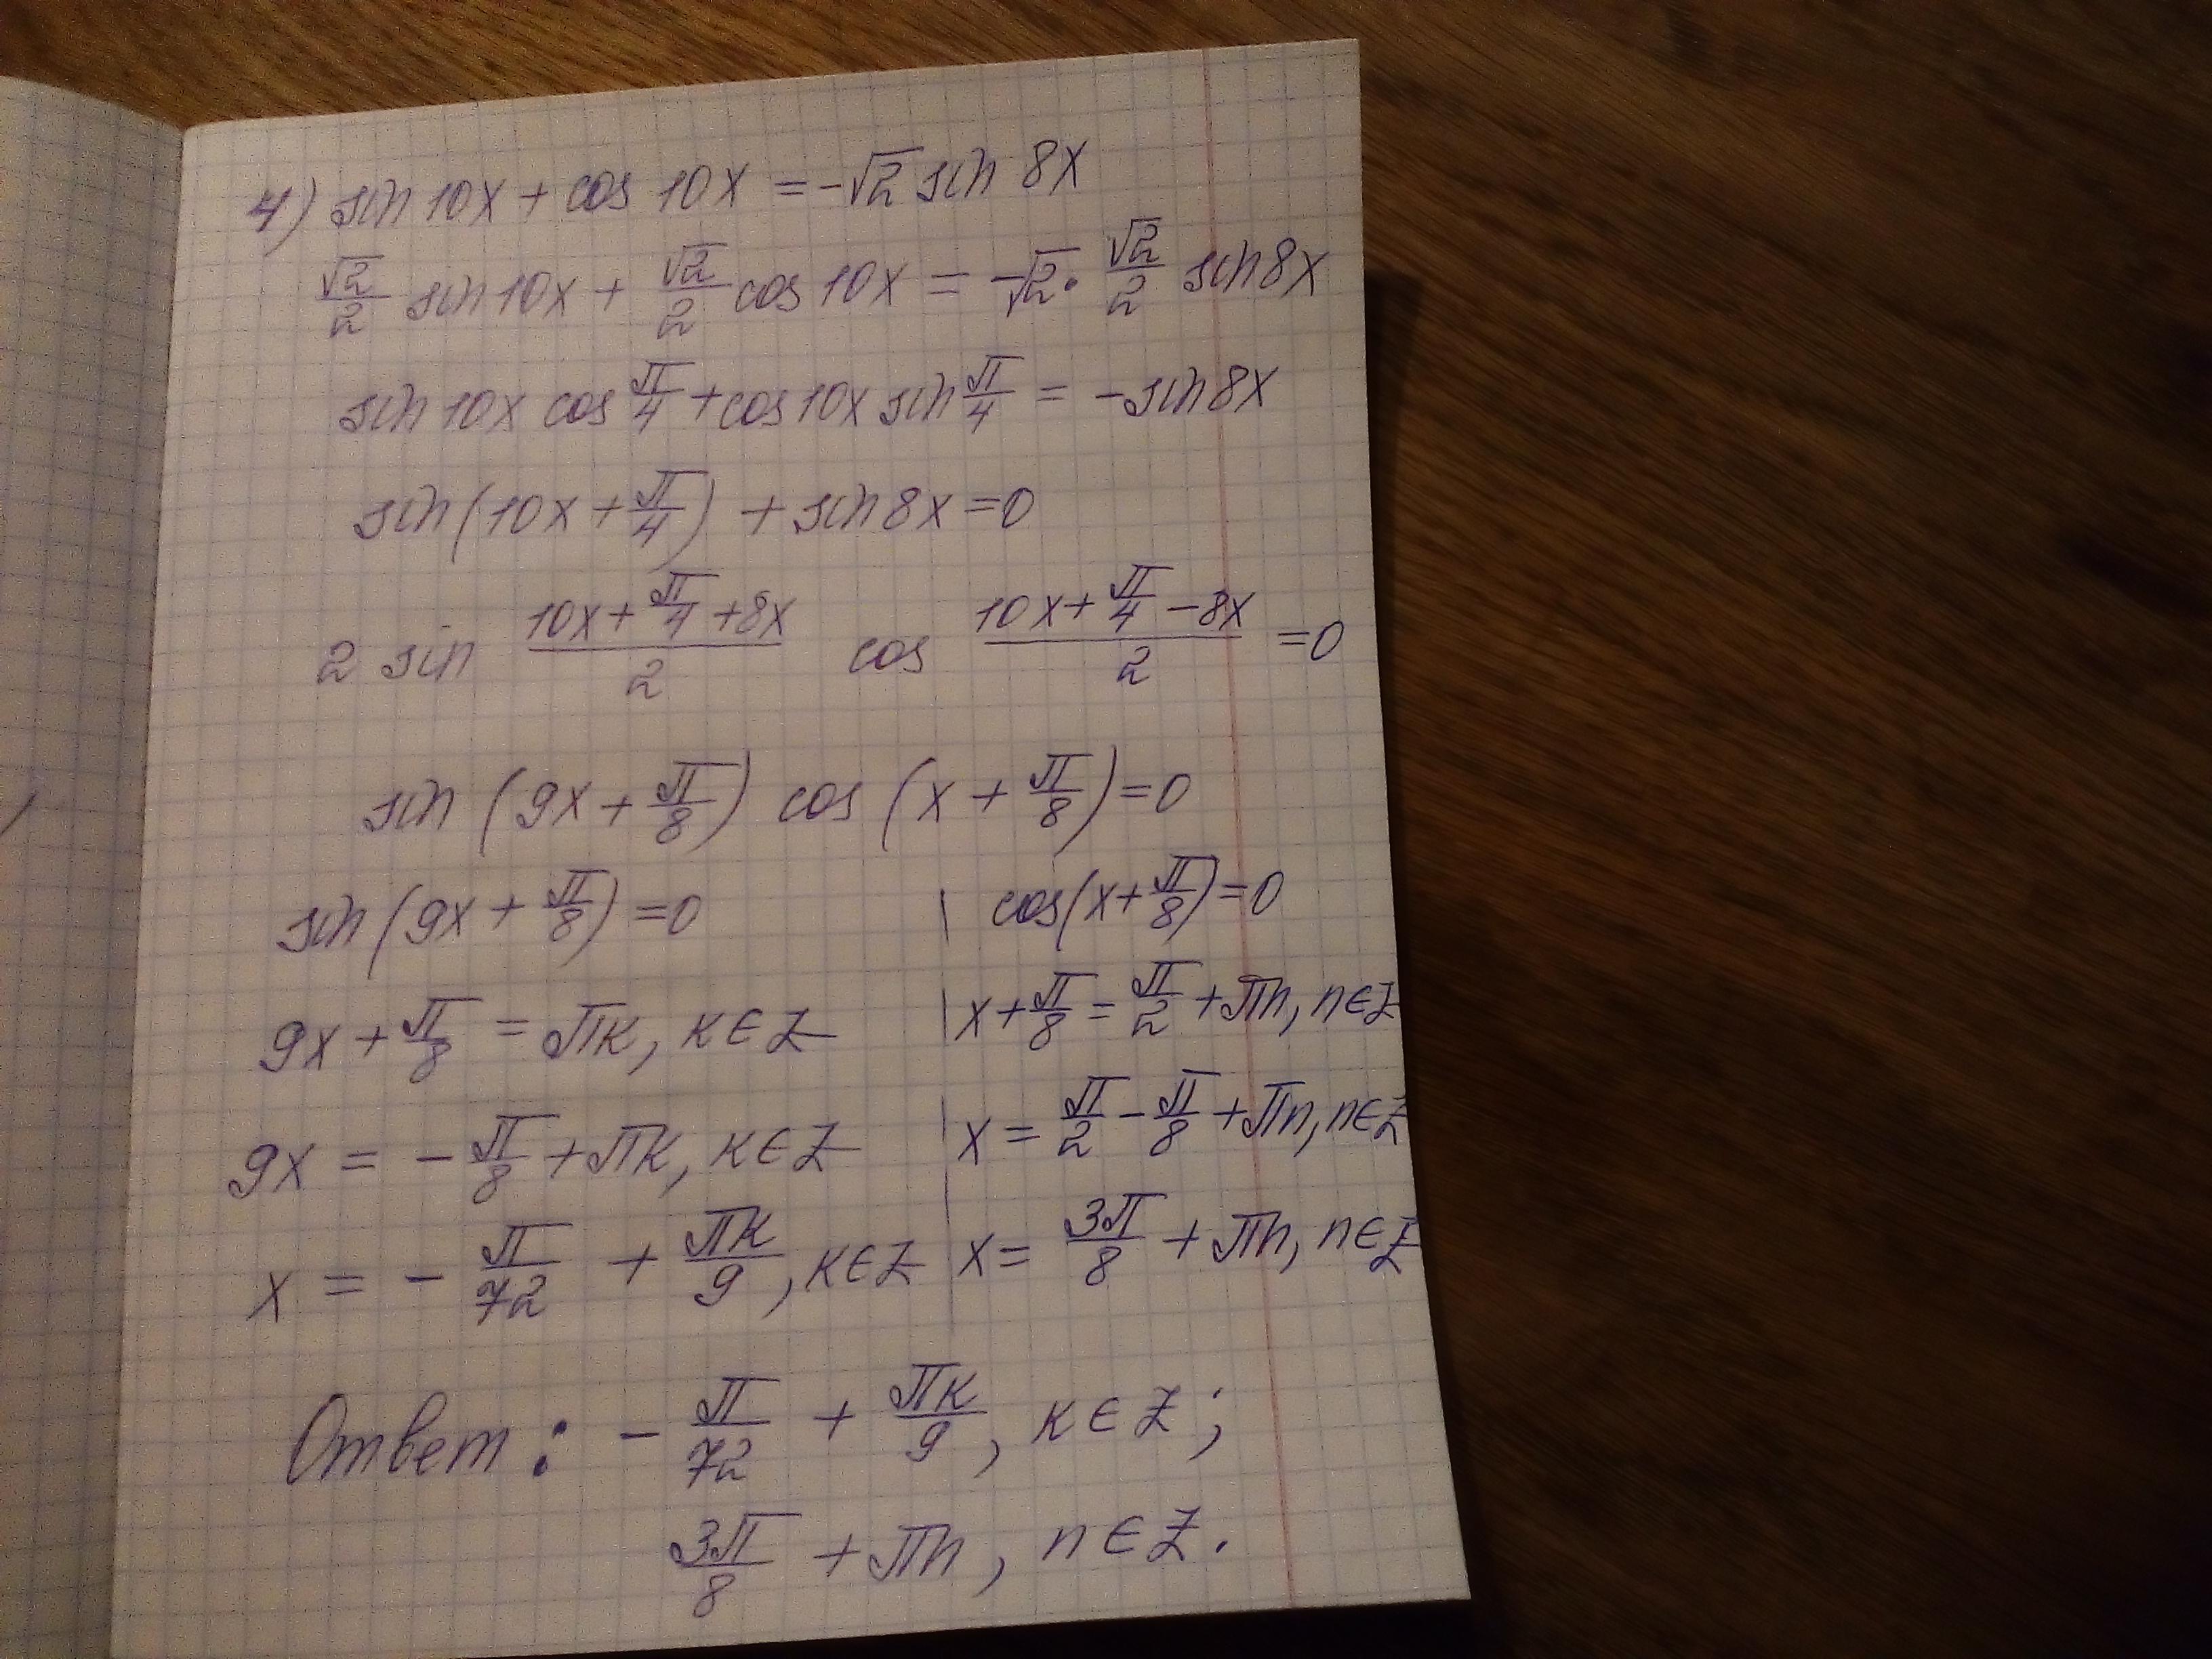 4) sin 10x + cos 10x = -√2 sin 8x
√2/2 sin 10x + √2/2 cos 10x = -√2 · √2/2 sin 8x
sin 10x cos π/4 + cos 10x sin π/4 = - sin 8x
sin(10x + π/4) + sin 8x = 0
2 sin (10x + π/4 + 8x)/2 cos (10x + π/4 - 8x)/2 = 0
sin (9x + π/8) cos (x + π/8) = 0
sin(9x + π/8) = 0 | cos(x + π/8) = 0
9x + π/8 = πк, к ∈ Z | x + π/8 = π/2 + πn, n ∈ Z
9x = - π/8 + πк, к ∈ Z | x = π/2 - π/8 + πn, n ∈ Z
x = - π/72 + πк/9, к ∈ Z | x = 3π/8 + πn, n ∈ Z
Ответ: - π/72 + πк/9, к ∈ Z;
3π/8 + πn, n ∈ Z.